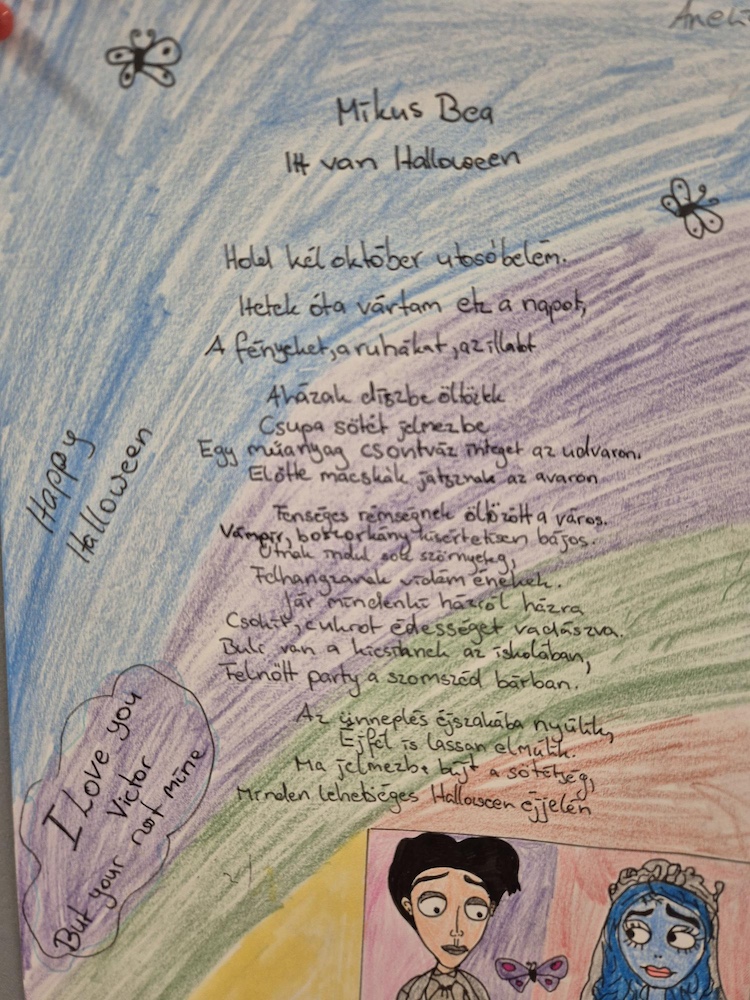 Mikus Bea
Itt van Halloween
Hold kél október utosóbelém.
Hetek óta vártam etz a napot,
A fényeket, a ruhákat, az illabt
A házak díszbe öltözkk
Csupa sötét jelmezbe
Egy műanyag csontváz integet az udvaron.
Előtte macskák játsznak az avaron
Fenséges rémségnek öltözött a város.
Vámpír, boszorkány kisértetisen bájos.
Útnak indul sok szörnyeteg,
Felhangzanak vidám énekek.
Jár mindenki házról házra
Csokit, cukrot édességet vadászva.
Buli van a kicsiknek az iskolában,
Felnőtt party a szomszéd bárban.
Az ünneplés éjszakába nyúlik,
Éjfél is lassan elmulik.
Ma jelmezbe bújt a sötétség,
Minden lehetséges Halloween éjjelén
Happy
Halloween
I Love you
Victor
But your not mine